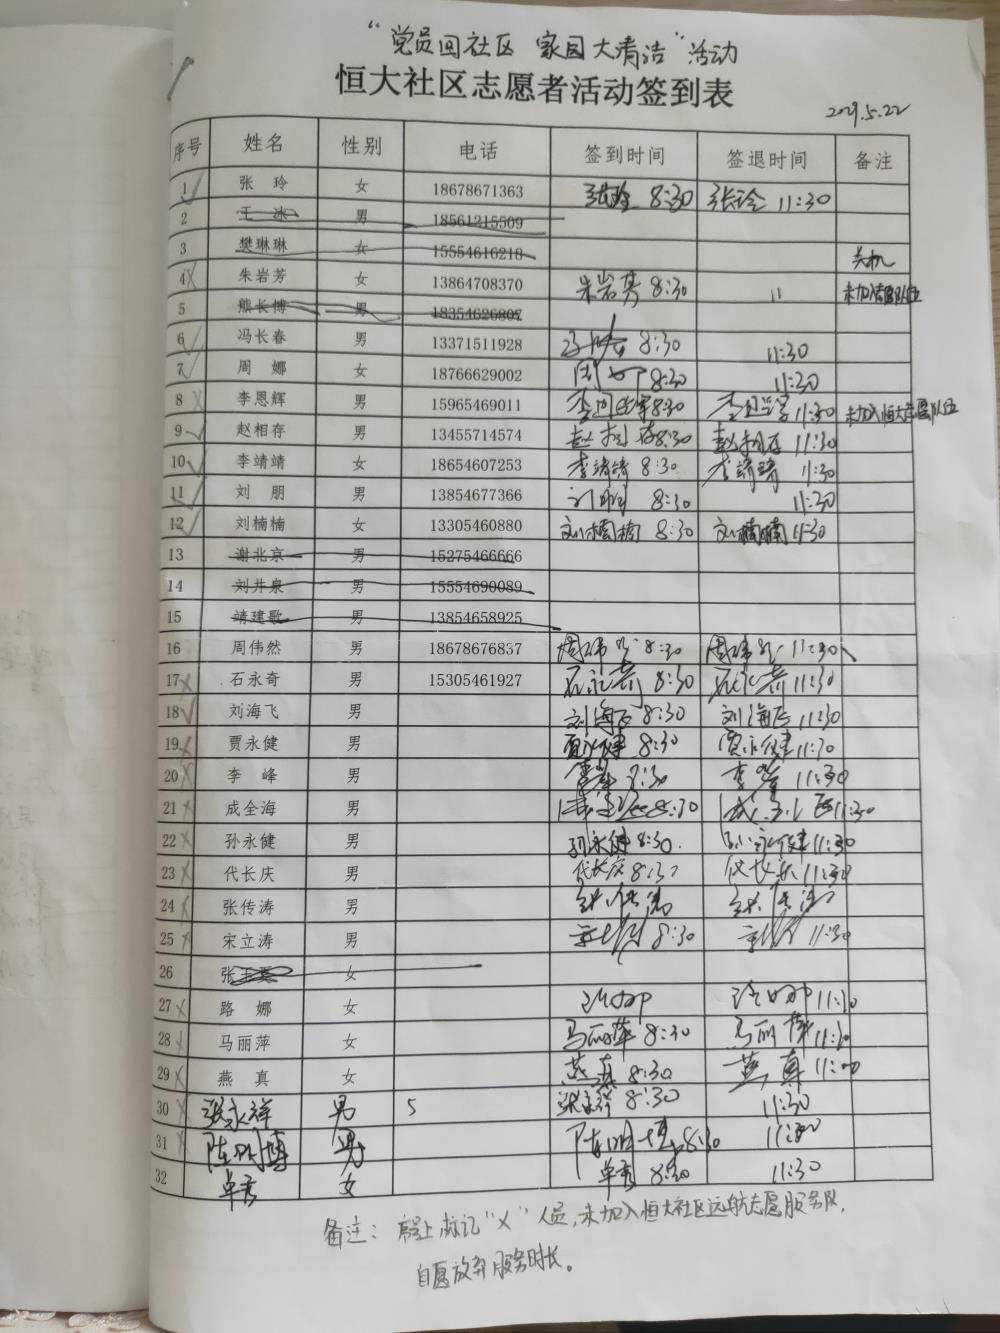 “党员回社区 家园大清洁”活动
恒大社区志愿者活动签到表
2021.5.22
序号 姓名 性别 电话 签到时间 签退时间 备注
1 张玲 女 18678671363 张玲 8:30 张玲 11:30
2 王冰 男 18561215509
3 樊琳琳 女 15554616218 关机
4 朱岩芳 女 13864708370 朱岩芳 8:30 11 未加入志愿队伍
5 熊长博 男 18354626802
6 冯长春 男 13371511928 8:30 11:30
7 周娜 女 18766629002 周娜 8:30 11:30
8 李恩辉 男 15965469011 李恩辉 8:30 李恩辉 11:30 未加入恒大志愿队伍
9 赵相存 男 13455714574 赵相存 8:30 赵相存 11:30
10 李靖靖 女 18654607253 李靖靖 8:30 李靖靖 11:30
11 刘朋 男 13854677366 刘朋 8:30 11:30
12 刘楠楠 女 13305460880 刘楠楠 8:30 刘楠楠 11:30
13 谢北京 男 15275466666
14 刘井泉 男 15554690089
15 靖建歌 男 13854658925
16 周伟然 男 18678676837 周伟然 8:30 周伟然 11:30
17 石永奇 男 15305461927 石永奇 8:30 石永奇 11:30
18 刘海飞 男 刘海飞 8:30 刘海飞 11:30
19 贾永健 男 贾永健 8:30 贾永健 11:30
20 李峰 男 李峰 8:30 李峰 11:30
21 成全海 男 成全海 8:30 成全海 11:30
22 孙永健 男 孙永健 8:30 孙永健 11:30
23 代长庆 男 代长庆 8:30 代长庆 11:30
24 张传涛 男 张传涛 张传涛
25 宋立涛 男 宋立涛 8:30 宋立涛 11:30
26 张玉 女
27 路娜 女 路娜 路娜 11:30
28 马丽萍 女 马丽萍 8:30 马丽萍 11:30
29 燕真 女 燕真 8:30 燕真 11:00
30 张永祥 男 5 张永祥 8:30 11:30
31 陈明博 男 陈明博 8:30 11:30
32 单秀 女 单秀 8:30 11:30
备注：序号上标记“×”人员，未加入恒大社区远航志愿服务队，
自愿放弃服务时长。